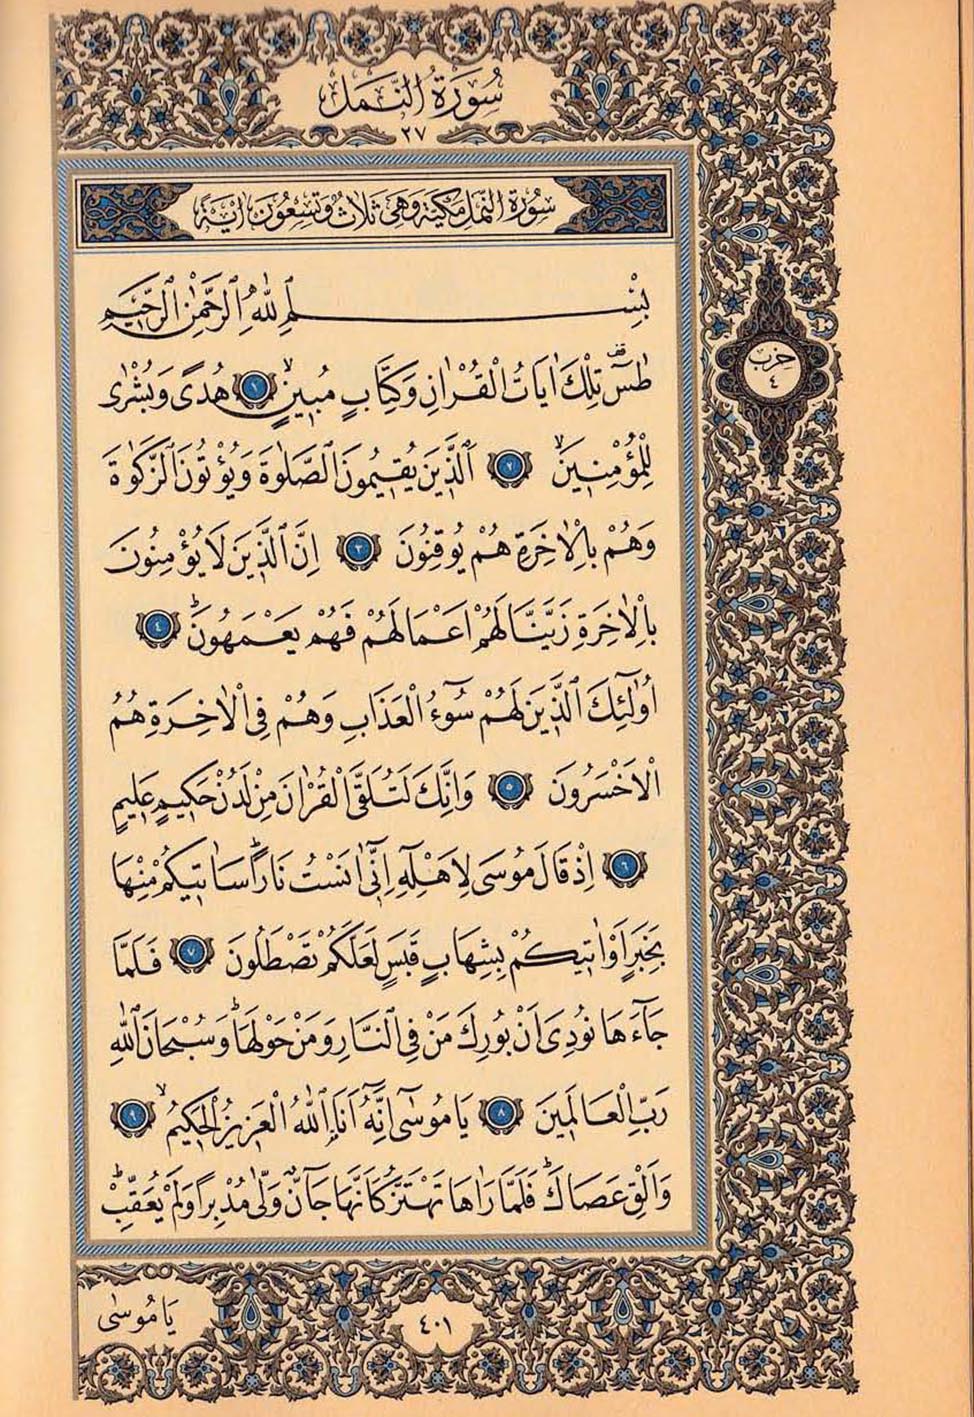 سُورَةُ النَّمْلِ
٢٧
سُورَةُ النَّمْلِ مَكِّيَّةٌ وَهِيَ ثَلَاثٌ وَتِسْعُونَ اٰيَةً
حزب
٤
بِسْــــــــمِ اللّٰهِ الرَّحْمٰنِ الرَّحِيمِ
طٰسٓ تِلْكَ اٰيَاتُ الْقُرْاٰنِ وَكِتَابٍ مُبِينٍۙ ١ هُدًى وَبُشْرٰى
لِلْمُؤْمِنِينَۙ ٢ اَلَّذِينَ يُقِيمُونَ الصَّلٰوةَ وَيُؤْتُونَ الزَّكٰوةَ
وَهُمْ بِالْاٰخِرَةِ هُمْ يُوقِنُونَ ٣ اِنَّ الَّذِينَ لَا يُؤْمِنُونَ
بِالْاٰخِرَةِ زَيَّنَّا لَهُمْ اَعْمَالَهُمْ فَهُمْ يَعْمَهُونَۜ ٤
اُو۬لٰٓئِكَ الَّذِينَ لَهُمْ سُٓوءُ الْعَذَابِ وَهُمْ فِي الْاٰخِرَةِ هُمُ
الْاَخْسَرُونَ ٥ وَاِنَّكَ لَتُلَقَّى الْقُرْاٰنَ مِنْ لَدُنْ حَكِيمٍ عَلِيمٍ
٦ اِذْ قَالَ مُوسٰى لِاَهْلِهِٓ اِنِّٓي اٰنَسْتُ نَارًاۜ سَاٰتِيكُمْ مِنْهَا
بِخَبَرٍ اَوْ اٰتِيكُمْ بِشِهَابٍ قَبَسٍ لَعَلَّكُمْ تَصْطَلُونَ ٧ فَلَمَّا
جَٓاءَهَا نُودِيَ اَنْ بُورِكَ مَنْ فِي النَّارِ وَمَنْ حَوْلَهَاۜ وَسُبْحَانَ اللّٰهِ
رَبِّ الْعَالَمِينَ ٨ يَا مُوسٰٓى اِنَّهُٓ اَنَا اللّٰهُ الْعَزِيزُ الْحَكِيمُۙ ٩
وَاَلْقِ عَصَاكَۜ فَلَمَّا رَاٰهَا تَهْتَزُّ كَاَنَّهَا جَٓانٌّ وَلّٰى مُدْبِرًا وَلَمْ يُعَقِّبْۜ
يَا مُوسٰى
٤٠١